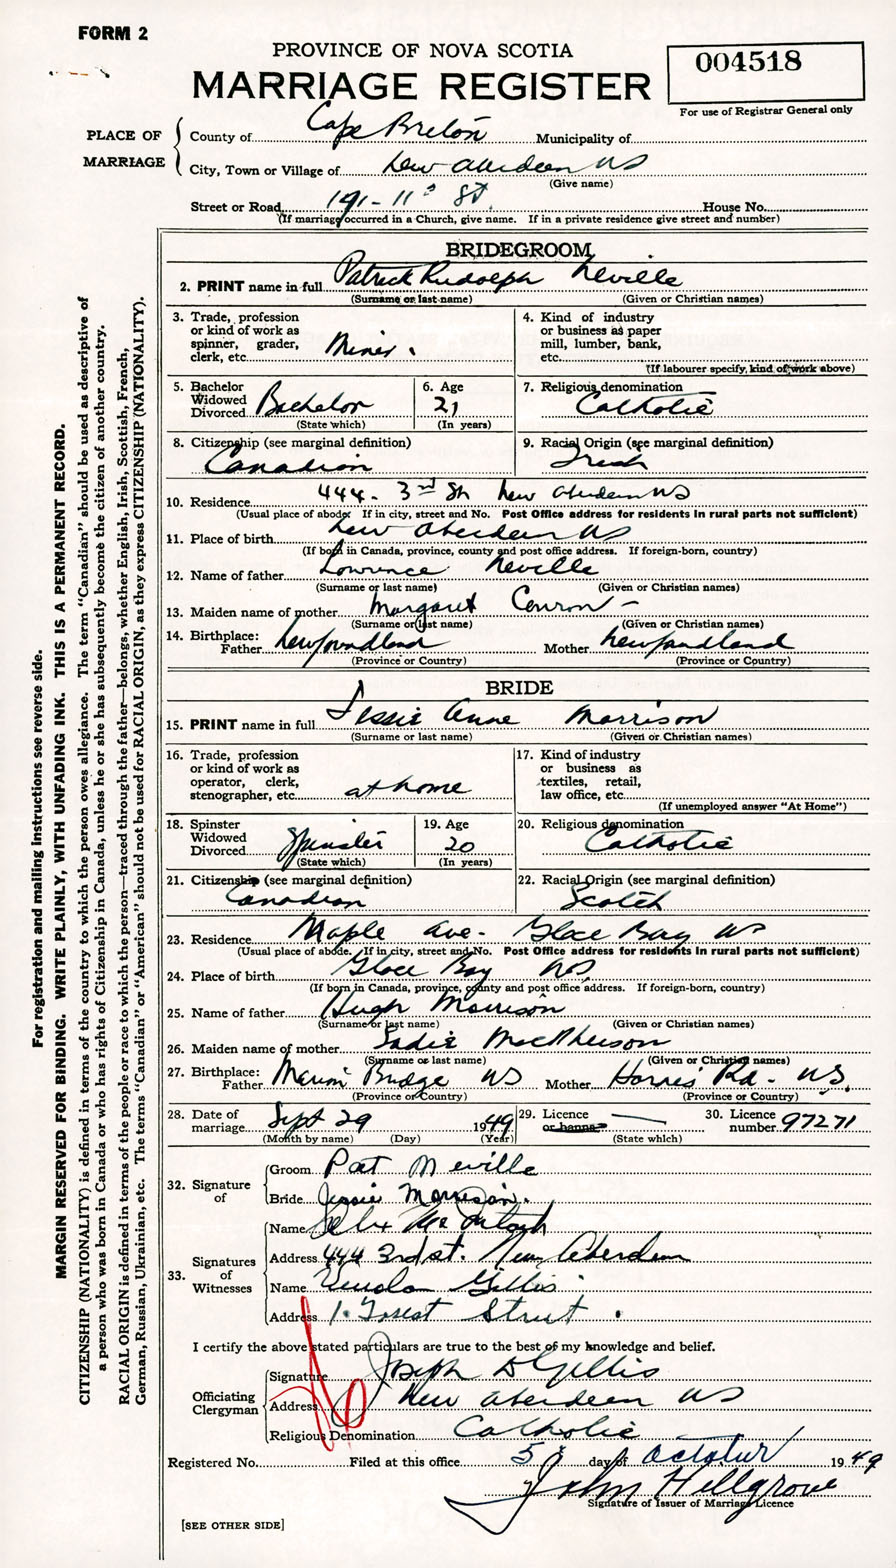 FORM 2
PROVINCE OF NOVA SCOTIA
MARRIAGE REGISTER
004518
For use of Registrar General only
PLACE OF MARRIAGE
County of Cape Breton Municipality of
City, Town or Village of New Aberdeen NS
(Give name)
Street or Road 191-11th St. House No.
(If marriage occurred in a Church, give name. If in a private residence give street and number)
BRIDEGROOM
2. PRINT name in full Patrick Rudolph Neville
(Surname or last name) (Given or Christian names)
3. Trade, profession or kind of work as spinner, grader, clerk, etc. Miner.
4. Kind of industry or business as paper mill, lumber, bank, etc.
(If labourer specify, kind of work above)
5. Bachelor Widowed Divorced Bachelor
(State which)
6. Age 21
(In years)
7. Religious denomination Catholic
8. Citizenship (see marginal definition) Canadian
9. Racial Origin (see marginal definition) Irish
10. Residence 444 - 3rd St New Aberdeen NS
(Usual place of abode. If in city, street and No. Post Office address for residents in rural parts not sufficient)
11. Place of birth New Aberdeen NS
(If born in Canada, province, county and post office address. If foreign-born, country)
12. Name of father Lawrence Neville
(Surname or last name) (Given or Christian names)
13. Maiden name of mother Margaret Conron -
(Surname or last name) (Given or Christian names)
14. Birthplace: Father Newfoundland Mother Newfoundland
(Province or Country) (Province or Country)
BRIDE
15. PRINT name in full Jessie Anne Morrison
(Surname or last name) (Given or Christian names)
16. Trade, profession or kind of work as operator, clerk, stenographer, etc. at home
17. Kind of industry or business as textiles, retail, law office, etc.
(If unemployed answer "At Home")
18. Spinster Widowed Divorced Spinster
(State which)
19. Age 20
(In years)
20. Religious denomination Catholic
21. Citizenship (see marginal definition) Canadian
22. Racial Origin (see marginal definition) Scotch
23. Residence Maple Ave - Glace Bay NS
(Usual place of abode. If in city, street and No. Post Office address for residents in rural parts not sufficient)
24. Place of birth Glace Bay NS
(If born in Canada, province, county and post office address. If foreign-born, country)
25. Name of father Hugh Morrison
(Surname or last name) (Given or Christian names)
26. Maiden name of mother Sadie MacPherson
(Surname or last name) (Given or Christian names)
27. Birthplace: Father Marion Bridge NS Mother Horne's Rd - NS.
(Province or Country) (Province or Country)
28. Date of marriage Sept 29 1949
(Month by name) (Day) (Year)
29. Licence or banns
(State which)
30. Licence number 97271
32. Signature of
Groom Pat Neville
Bride Jessie Morrison.
33. Signatures of Witnesses
Name McIntosh
Address 444 3rd st. New Aberdeen
Name Gillis
Address 1. Forest Street.
I certify the above stated particulars are true to the best of my knowledge and belief.
Officiating Clergyman
Signature Joseph D Gillis
Address New Aberdeen NS
Religious Denomination Catholic
Registered No. Filed at this office 5th day of October 1949
John Hillgrove
Signature of Issuer of Marriage Licence
[SEE OTHER SIDE]
For registration and mailing instructions see reverse side.
MARGIN RESERVED FOR BINDING. WRITE PLAINLY, WITH UNFADING INK. THIS IS A PERMANENT RECORD.
CITIZENSHIP (NATIONALITY) is defined in terms of the country to which the person owes allegiance. The term "Canadian" should be used as descriptive of
a person who was born in Canada or who has rights of Citizenship in Canada, unless he or she has subsequently become the citizen of another country.
RACIAL ORIGIN is defined in terms of the people or race to which the person—traced through the father—belongs, whether English, Irish, Scottish, French,
German, Russian, Ukrainian, etc. The terms "Canadian" or "American" should not be used for RACIAL ORIGIN, as they express CITIZENSHIP (NATIONALITY).